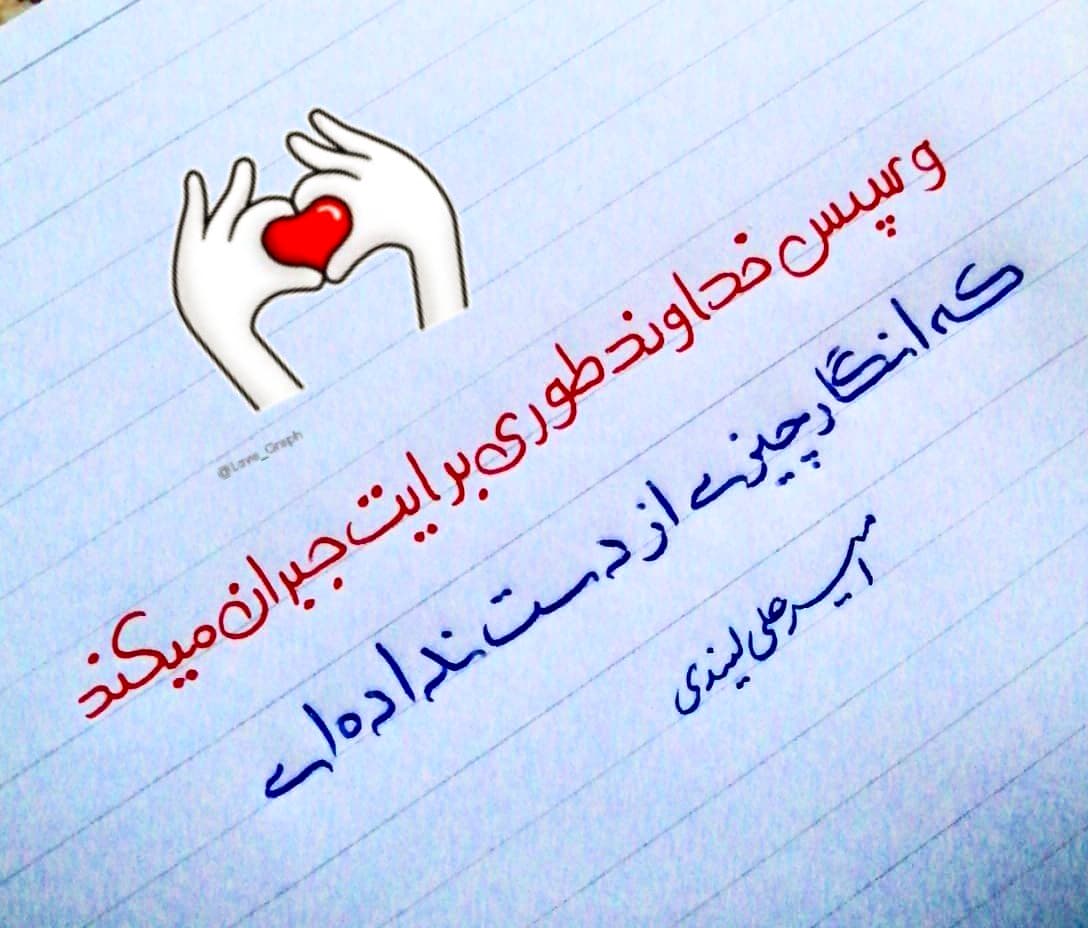 و سپس خداوند طوری برایت جبران میکند
که انگار چیزی از دست نداده ای
امیرعلی لیندی
@Love_Graph